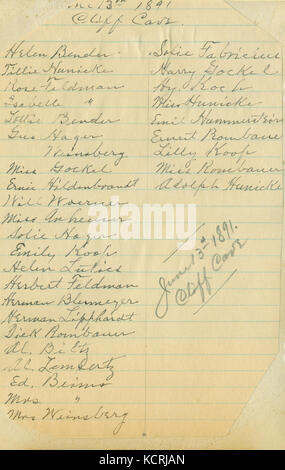 June 13th 1891
Cliff Cave.
Helen Bender
Tillie Hunicke
Rose Feldman
Isabelle "
Lottie Bender
Gus Hager
Weinsberg
Miss Gockel
Ernie Hildenbrandt
Will Woerner
Miss
Solie Hager
Emily Koop
Helen
Herbert Feldman
Herman Blumeyer
Herman Lipphardt
Dick Rombauer
Al. Biltz
Al. Lambertz
Ed. Beims
Mrs "
Mrs Weinsberg
Solie Fabricius
Harry Gockel
Hy. Koch
Miss Hunicke
Emil Hammerstein
Ernest Rombauer
Lilly Koop
Miss Rombauer
Adolph Hunicke
June 13th 1891.
Cliff Cave
alamy
Image ID: KCRJAN
www.alamy.com